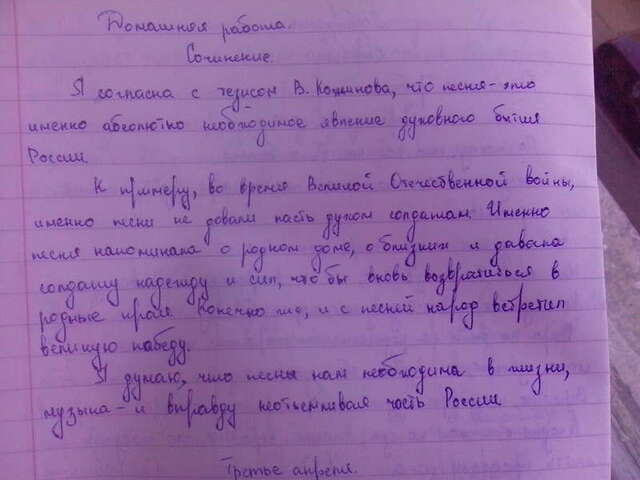 Домашняя работа.
Сочинение.
Я согласна с тезисом В. Кожинова, что песня-это
именно абсолютно необходимое явление духовного бытия
России
К примеру, во время Великой Отечественной войны,
именно песни не давали пасть духом солдатам. Именно
песня напоминала о родном доме, о близких и давала
солдату надежду и сил, что бы вновь возвратиться в
родные края. Конечно же, и с песней народ встретил
великую победу.
Я думаю, что песня нам необходима в жизни,
музыка - и вправду неотъемливая часть России
Третье апреля.